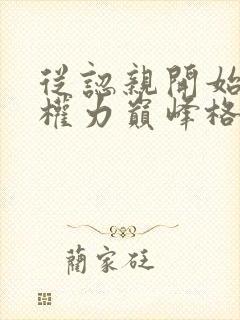 從認親開始
權力巔峰格
蘭家珽